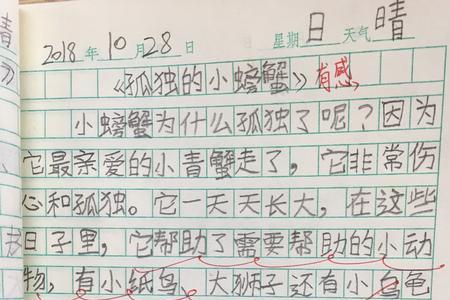 2018年10月28日 星期日天气晴
《孤独的小螃蟹》有感
小螃蟹为什么孤独了呢？因为
它最亲爱的小青蟹走了，它非常伤
心和孤独。它一天天长大，在这些
日子里，它帮助了需要帮助的小动
物，有小纸鸟、大狮子还有小乌龟